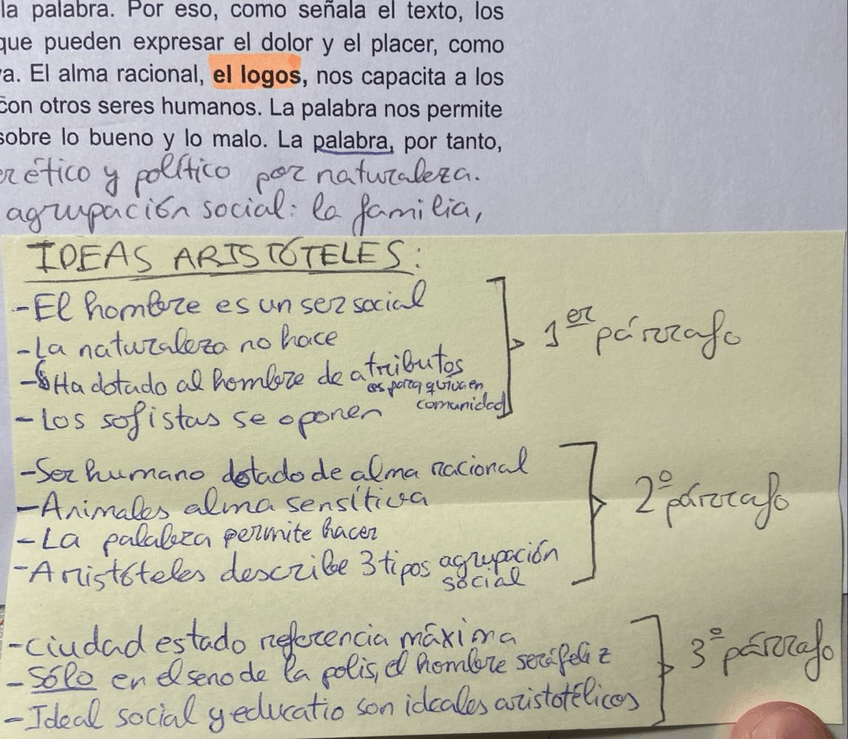 la palabra. Por eso, como señala el texto, los
que pueden expresar el dolor y el placer, como
va. El alma racional, el logos, nos capacita a los
con otros seres humanos. La palabra nos permite
sobre lo bueno y lo malo. La palabra, por tanto,
ético y político por naturaleza.
agrupación social: la familia,
IDEAS ARISTÓTELES:
- El hombre es un ser social
- La naturaleza no hace
- Ha dotado al hombre de atributos
es para q vivan en
comunidad
- Los sofistas se oponen
1er párrafo
- Ser humano dotado de alma racional
- Animales alma sensitiva
- La palabra permite hacer
- Aristóteles describe 3 tipos agrupación
social
2º párrafo
- Ciudad estado referencia máxima
- Sólo en el seno de la polis, el hombre será feliz
- Ideal social y educatio son ideales aristotélicos
3º párrafo